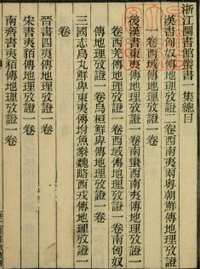 浙江圖書館叢書一集總目
漢書匈奴傳地理攷證二卷西南夷兩粤朝鮮傳地理攷證
一卷西域傳地理攷證一卷
後漢書東夷傳地理攷證一卷南蠻西南夷傳地理攷證一
卷西羌傳地理攷證一卷西域傳地理攷證一卷南匈奴
傳地理攷證一卷烏桓鮮卑傳地理攷證一卷
三國志烏丸鮮卑東夷傳附魚豢魏略西戎傳地理攷證一
卷
晉書四夷傳地理攷證一卷
宋書夷貊傳地理攷證一卷
南齊書夷貊傳地理攷證一卷